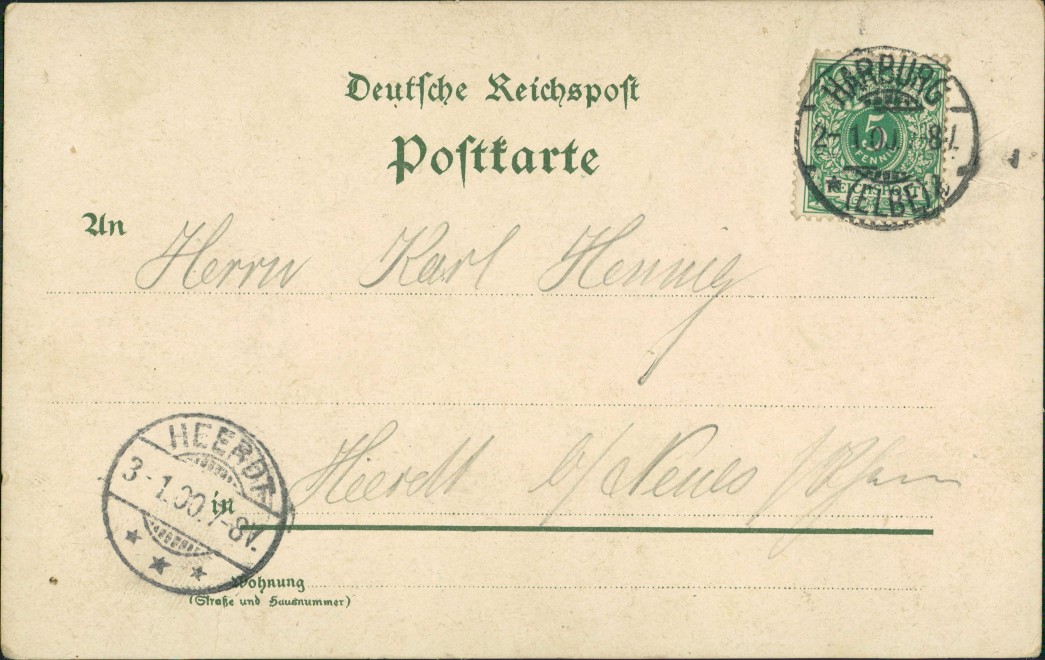 Deutsche Reichspost
Postkarte
HARBURG
2-1.00.7-8V.
* (ELBE) *
5
PFENNIG
REICHSPOST
An Herrn Karl Hennig
HEERDT
3-1.00.7-8V.
in Heerdt b/ Neuss /Rhein
Wohnung
(Straße und Hausnummer)